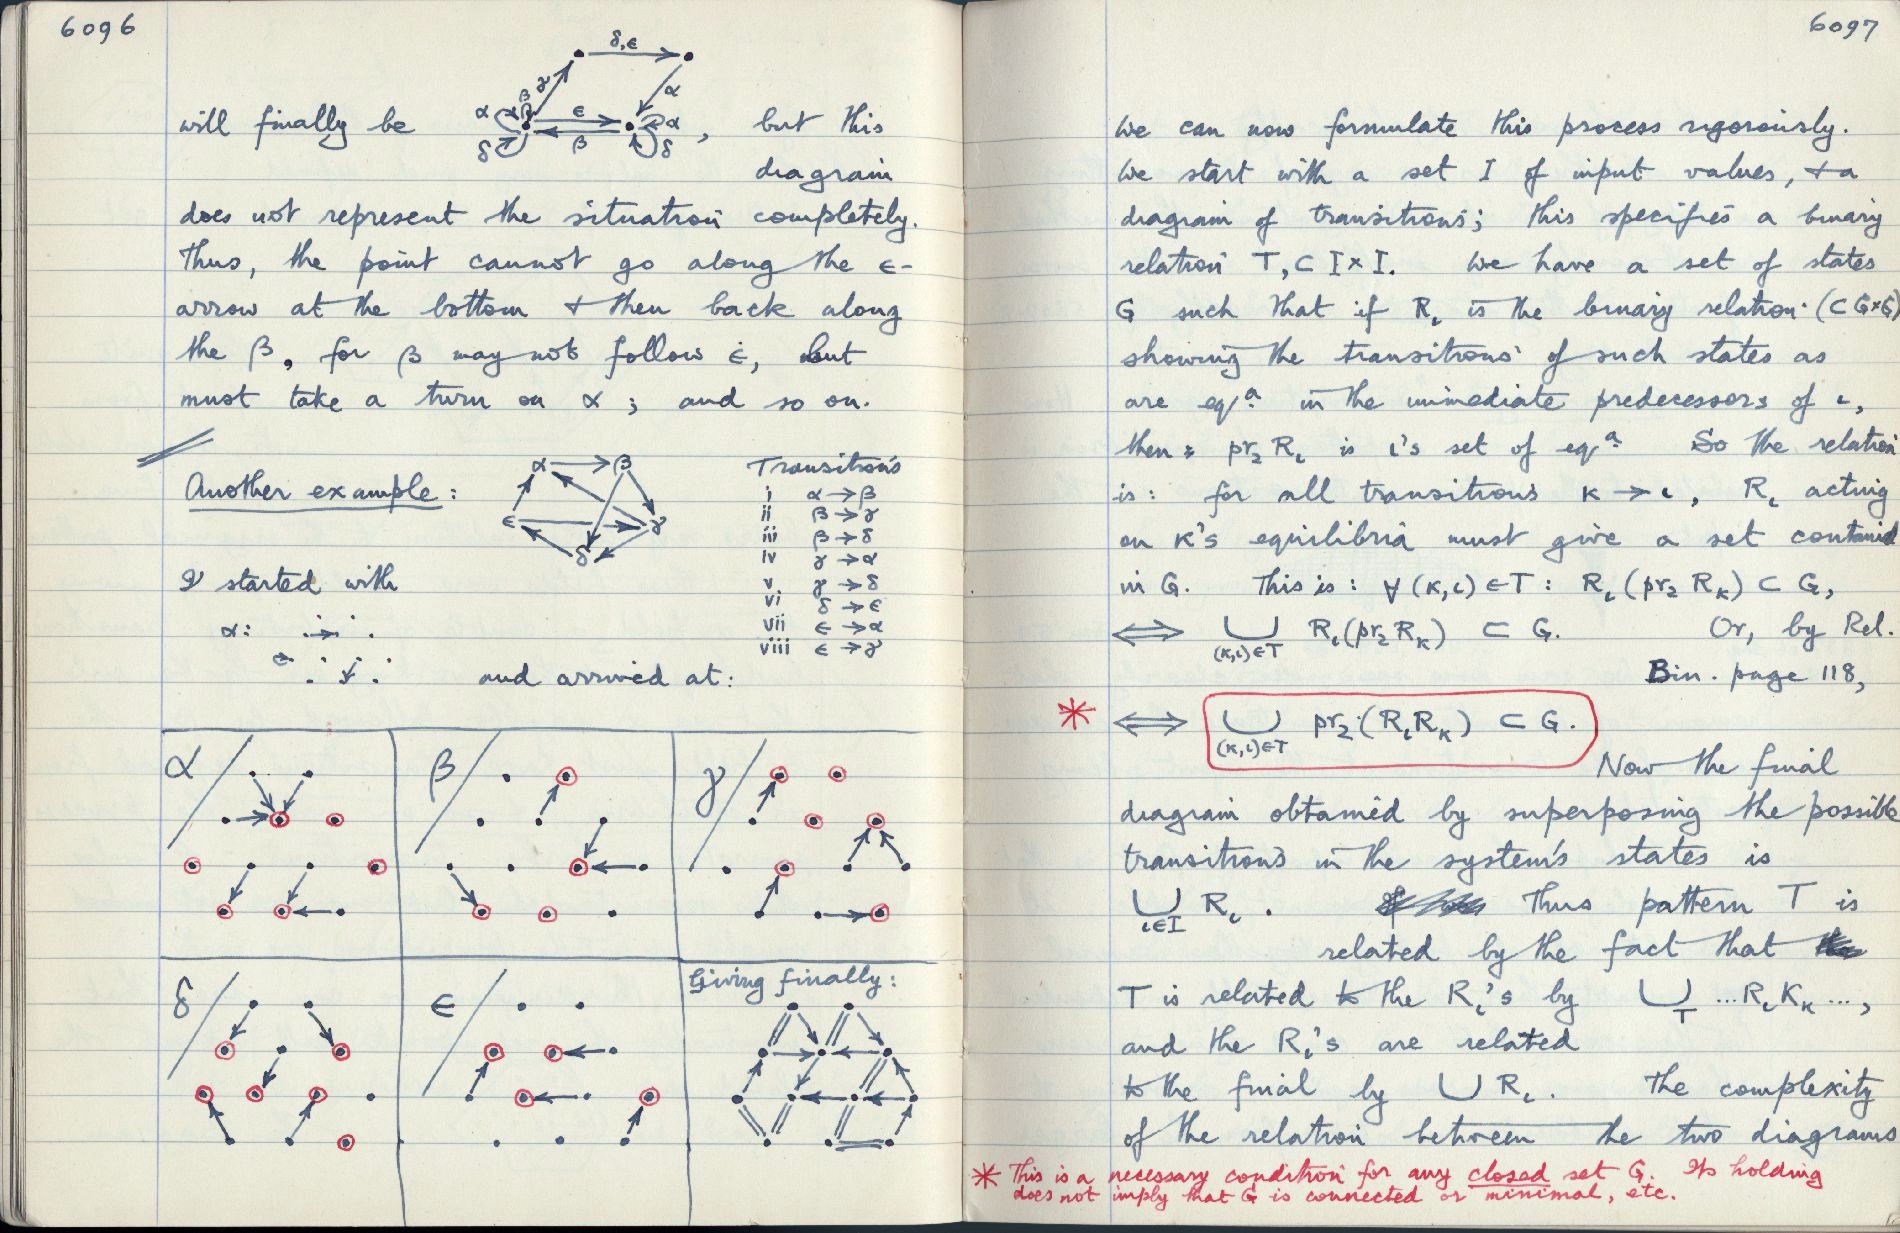 6096
δ,ε
γ
α
α β
ε
α
will finally be
, but this
δ
β
δ
diagram
does not represent the situation completely.
Thus, the point cannot go along the ε-
arrow at the bottom & then back along
the β, for β may not follow ε, but
must take a turn on α ; and so on.
Another example :
α β
ε γ
δ
Transitions
i α → β
ii β → γ
iii β → δ
iv γ → α
v γ → δ
vi δ → ε
vii ε → α
viii ε → γ
I started with
α:
and arrived at:
α β γ
δ ε Giving finally:
6097
We can now formulate this process rigorously.
We start with a set I of input values, & a
diagram of transitions; this specifies a binary
relation T, ⊂ I × I. We have a set of states
G such that if Rι is the binary relation (⊂ G×G)
showing the transitions of such states as
are eqᵃ in the immediate predecessors of ι,
then: pr₂ Rι is ι's set of eqᵃ So the relation
is: for all transitions κ → ι, Rι acting
on κ's equilibria must give a set contained
in G. This is: ∀ (κ,ι) ∈ T : Rι (pr₂ Rκ) ⊂ G,
⟺ ⋃ Rι (pr₂ Rκ) ⊂ G. Or, by Rel.
(κ,ι)∈T
Bin. page 118,
* ⟺ ⋃ pr₂ (Rι Rκ) ⊂ G.
(κ,ι)∈T
Now the final
diagram obtained by superposing the possible
transitions in the system's states is
⋃ Rι . Thus pattern T is
ι∈I
related by the fact that
T is related to the Rι's by ⋃ ... Rι Kκ ...,
T
and the Rι's are related
to the final by ⋃ Rι . The complexity
of the relation between the two diagrams
* This is a necessary condition for any closed set G. Its holding
does not imply that G is connected or minimal, etc.